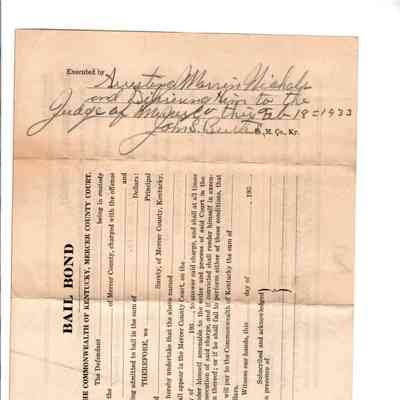 Executed by Arresting Marvin Nichols
and Delivering Him to the
Judge of Mercer Co this Feb-18=1933
John S. Butler S., M. Co., Ky.
BAIL BOND
THE COMMONWEALTH OF KENTUCKY, MERCER COUNTY COURT.
The Defendant being in custody
of Mercer County, charged with the offense
and
being admitted to bail in the sum of Dollars:
THEREFORE, we Principal
Surety, of Mercer County, Kentucky,
hereby undertake that the above named
shall appear in the Mercer County Court, on the
193 , to answer said charge, and shall at all times
render himself amenable to the order and process of said Court in the
prosecution of said charge, and if convicted shall render himself in execu-
tion thereof; or if he shall fail to perform either of these conditions, that
will pay to the Commonwealth of Kentucky the sum of
dollars.
Witness our hands, this day of , 193 .
Subscribed and acknowledged
in presence of